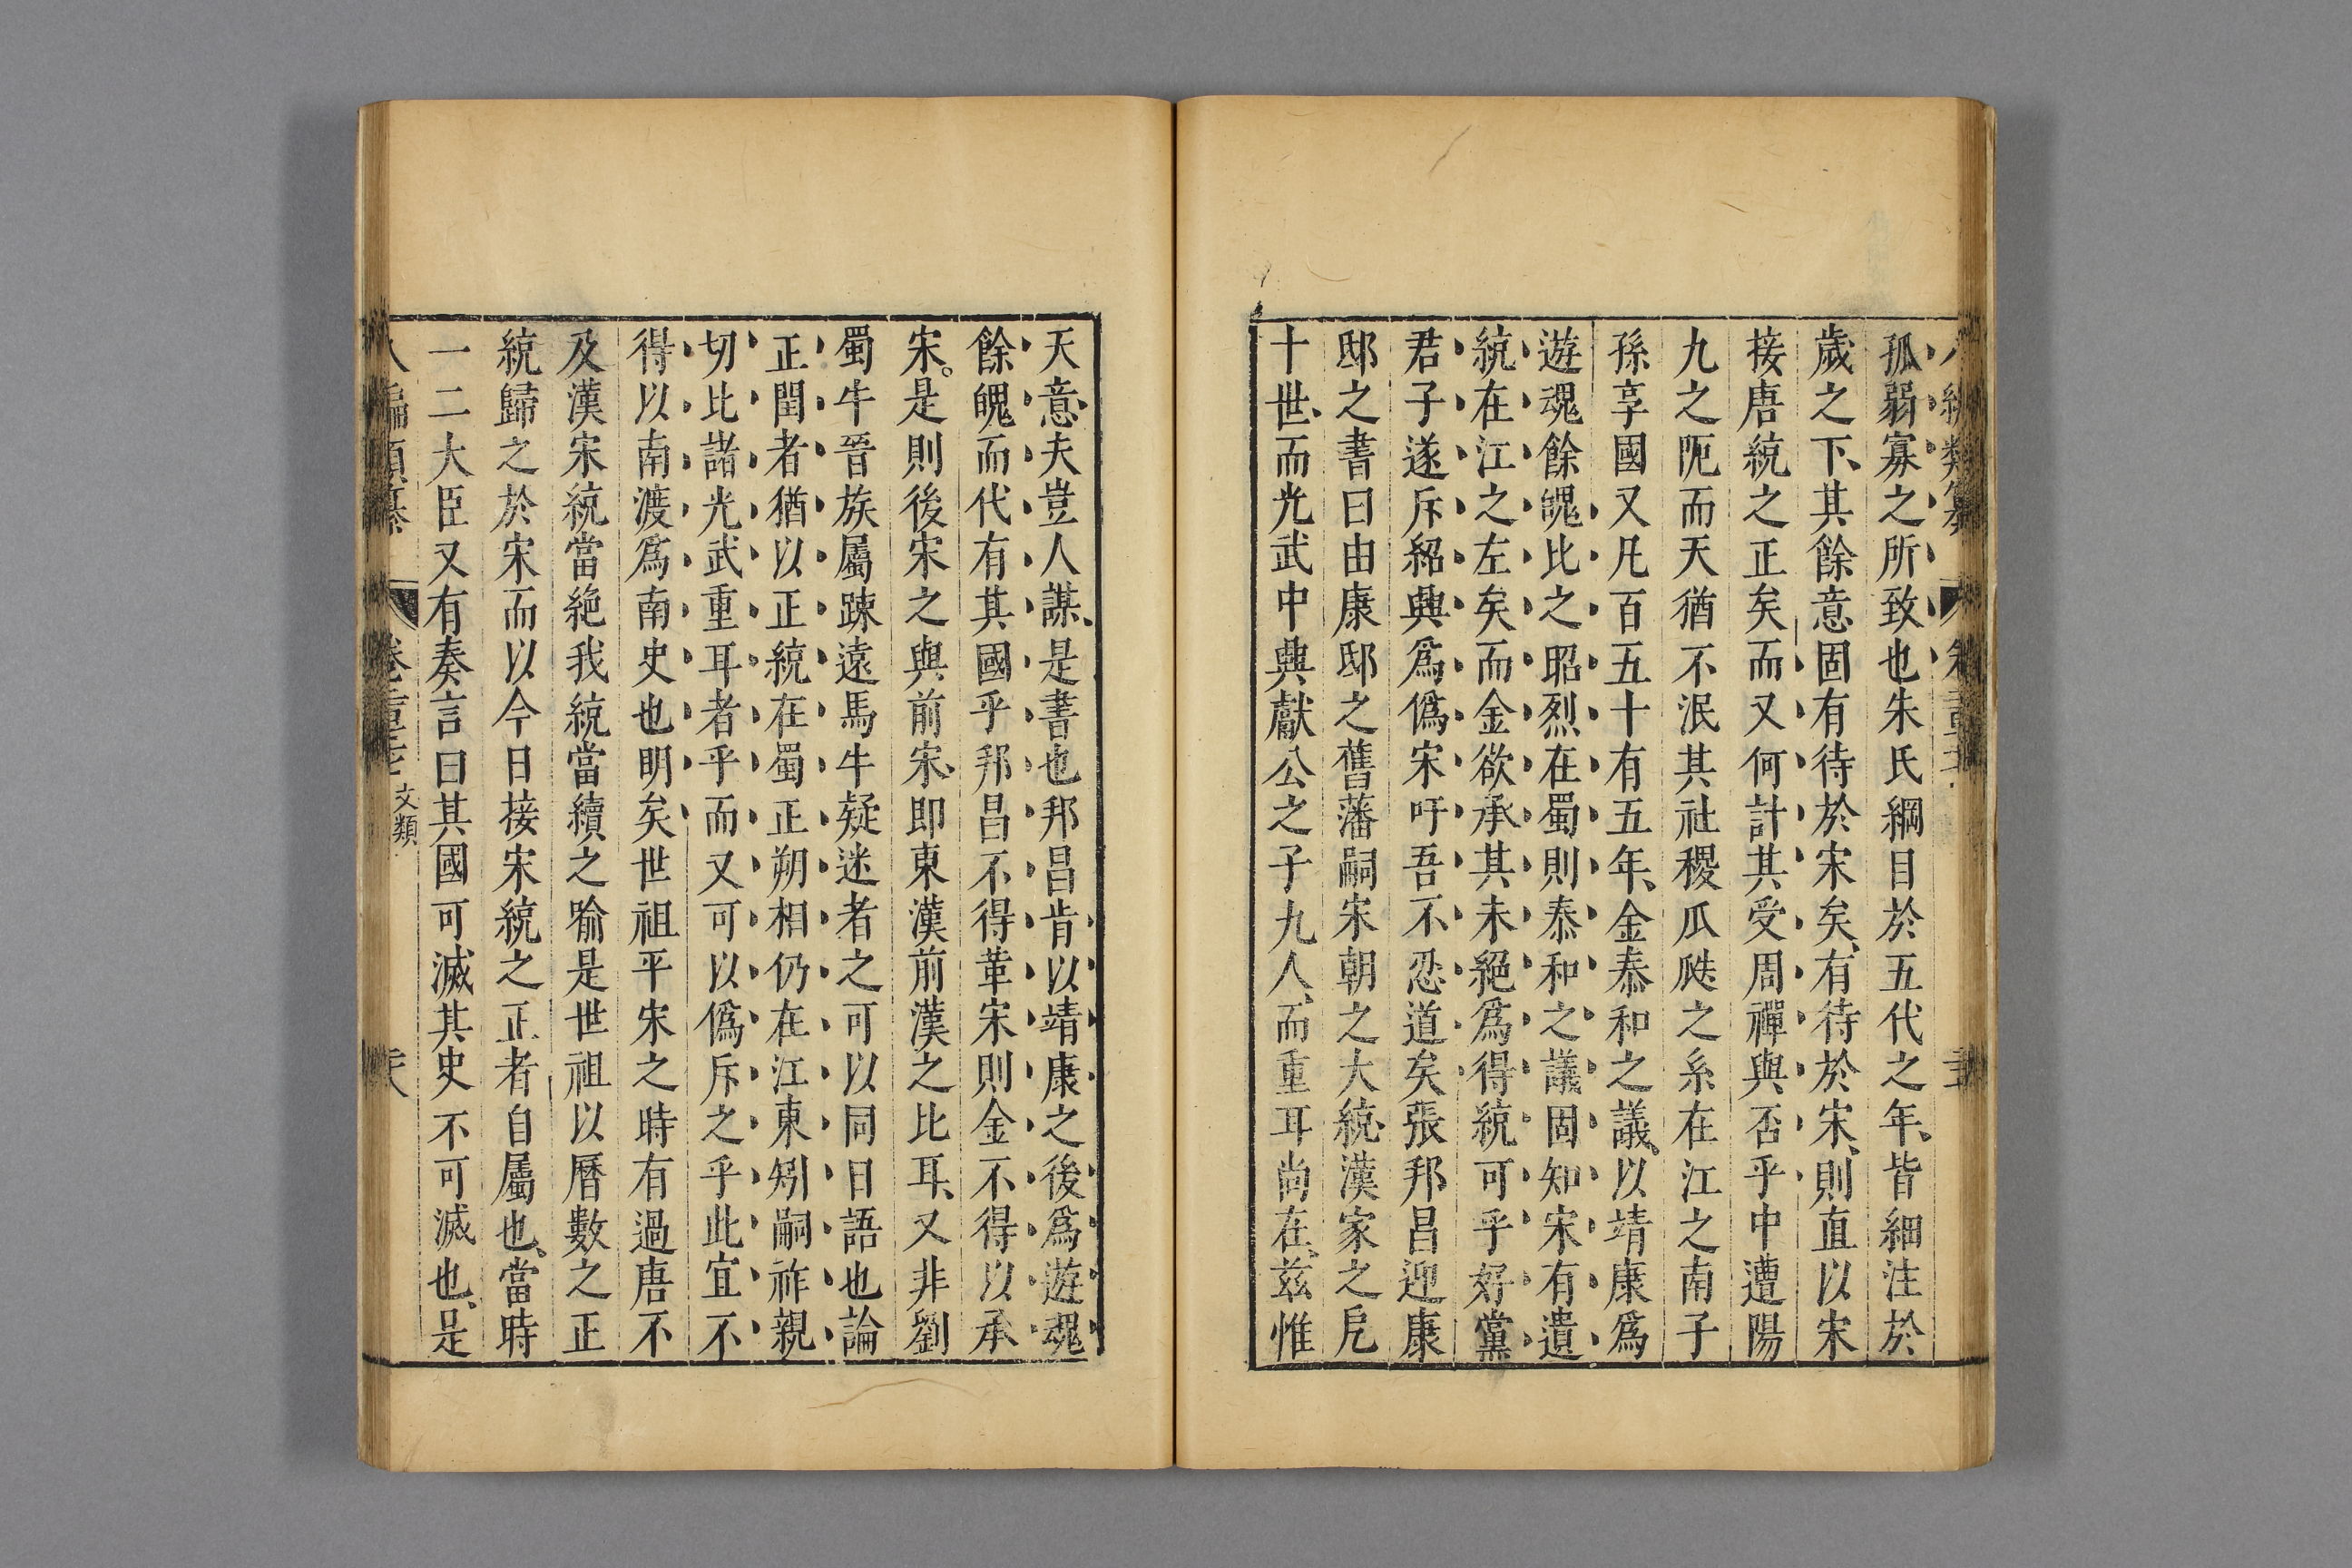 孤弱寡之所致也朱氏綱目於五代之年、皆細注於
歲之下、其餘意固有待於宋矣、有待於宋、則直以宋
接唐統之正矣而又何計其受周禪與否乎中遭陽
九之阨而天猶不泯其社稷瓜瓞之系在江之南子
孫享國又凡百五十有五年、金泰和之議、以靖康爲
遊魂餘魄比之昭烈在蜀則泰和之議固知宋有遺
統在江之左矣而金欲承其未絕爲得統可乎好黨
君子遂斥紹興爲僞宋吁吾不忍道矣張邦昌迎康
邸之書曰由康邸之舊藩嗣宋朝之大統、漢家之戹
十世、而光武中興獻公之子九人、而重耳尚在、茲惟
天意、夫豈人謀、是書也邦昌肯以靖康之後爲遊魂
餘魄而代有其國乎邦昌不得革宋則金不得以承
宋。是則後宋之與前宋、即東漢前漢之比耳、又非劉
蜀牛晉族屬疎遠馬牛疑迷者之可以同日語也論
正閏者猶以正統在蜀正朔相仍在江東矧嗣祚親
切比諸光武重耳者乎而又可以僞斥之乎此宜不
得以南渡爲南史也明矣世祖平宋之時有過唐不
及漢宋統當絶我統當續之喻是世祖以曆數之正
統歸之於宋而以今日接宋統之正者自屬也、當時
一二大臣又有奏言曰其國可滅其史不可滅也、是
文類